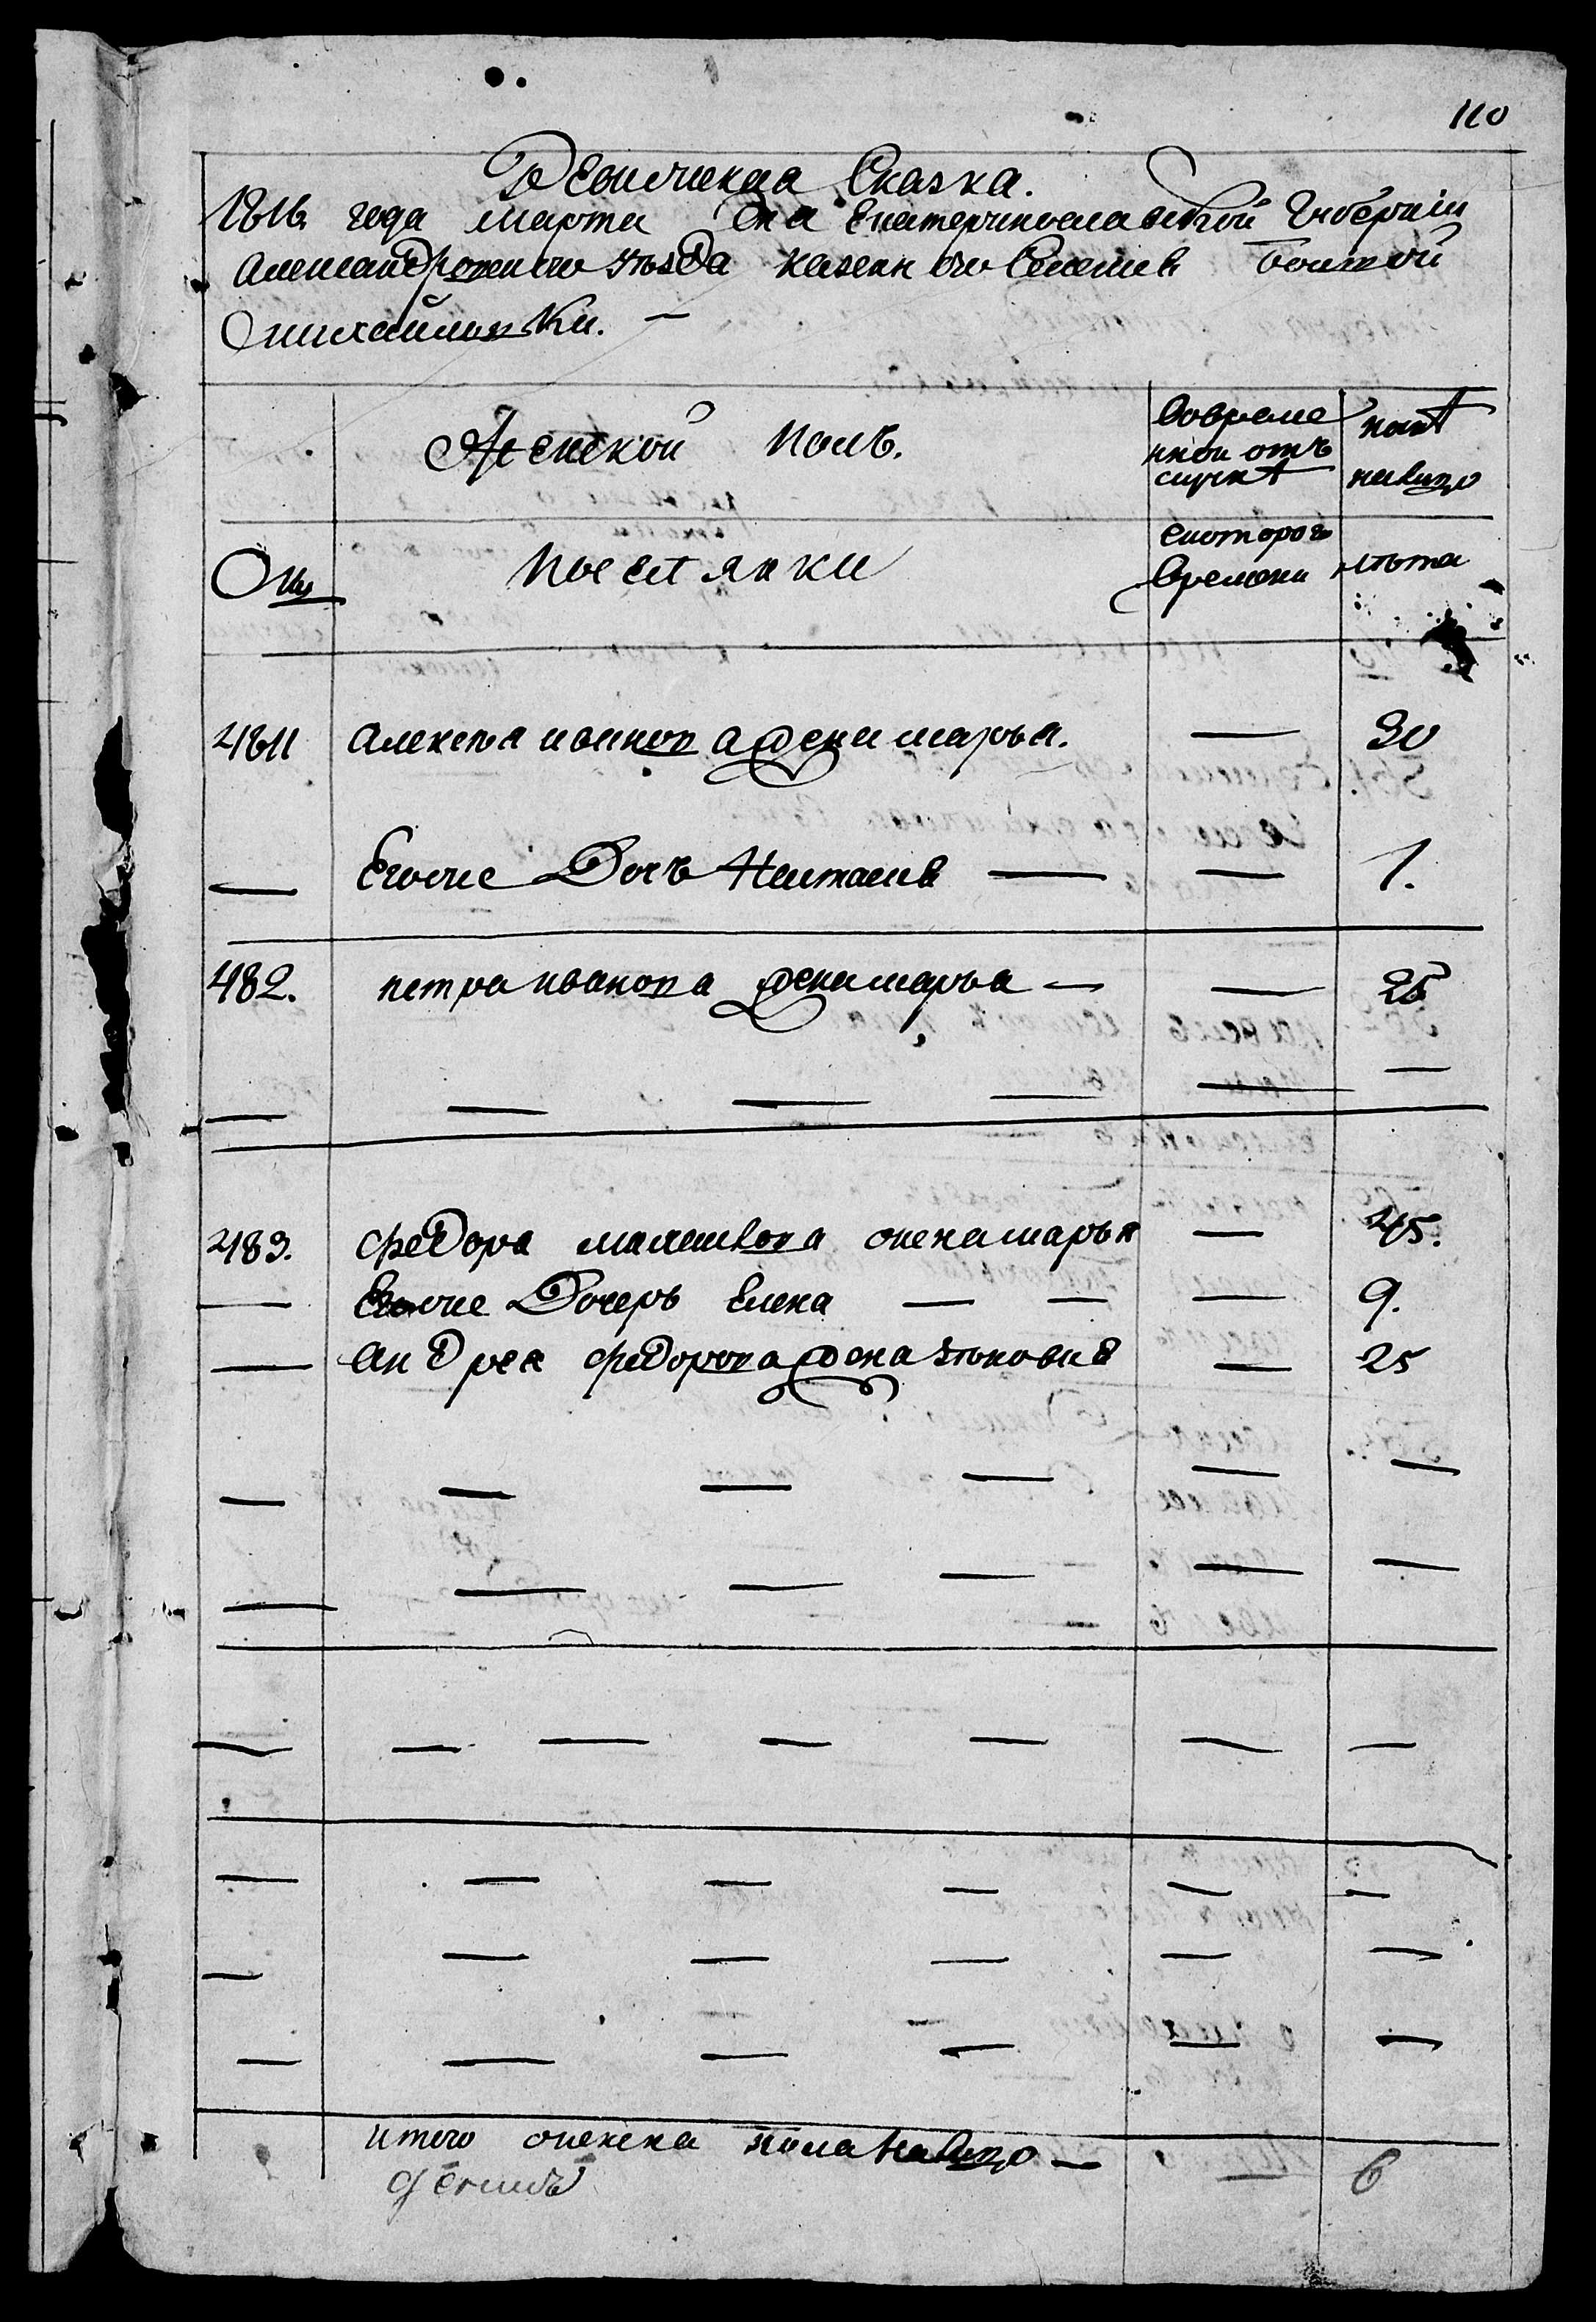 110
Ревижская Сказка.
1816 года марта дня Екатеринославской Губернии
Александровского уезда казенного Селения Болшой
Михайловки. —
Женской полъ.
Вовреме
нной отъ
лучкѣ
ныне
налицо
Поселянки
Скоторого
Времени
лѣта
4811 Алексея иванова жена марья. — 30
— Егоже Дочь Наталия — — 1.
482. петра иванова жена марья — — 25
— — — — — —
483. федора малашкова жена марья — 45.
— Егоже Дочерь Елена — — — 9.
— Андрея федорова жена — 25
— — — — — —
— — — — — —
— — — — — — —
— — — — — —
— — — — — —
— — — — — —
итого женска пола налицо — 6